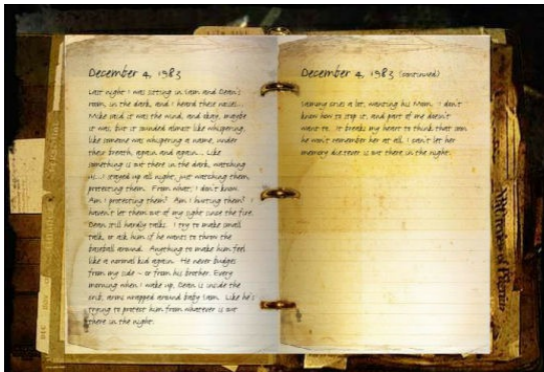 December 4, 1983
Last night I was sitting in Sam and Dean's
room, in the dark, and I heard these noises...
Mike said it was the wind, and okay, maybe
it was, but it sounded almost like whispering,
like someone was whispering a name, under
their breath, again and again... Like
something is out there in the dark, watching
us...I stayed up all night, just watching them,
protecting them. From what, I don't know.
Am I protecting them? Am I hurting them? I
haven't let them out of my sight since the fire.
Dean still hardly talks. I try to make small
talk, or ask him if he wants to throw the
baseball around. Anything to make him feel
like a normal kid again. He never budges
from my side - or from his brother. Every
morning when I wake up, Dean is inside the
crib, arms wrapped around baby Sam. Like he's
trying to protect him from whatever is out
there in the night.
December 4, 1983 (continued)
Sammy cries a lot, wanting his Mom. I don't
know how to stop it, and part of me doesn't
want to. It breaks my heart to think that soon
he won't remember her at all. I can't let her
memory die. ever is out there in the night.